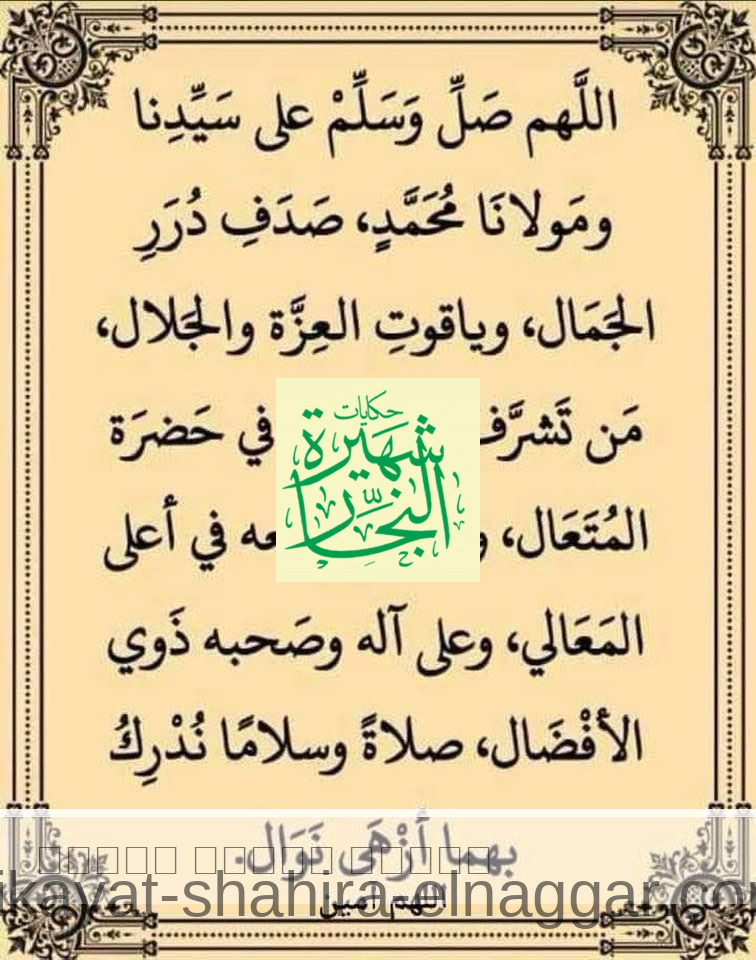 اللَّهم صَلِّ وَسَلِّمْ على سَيِّدِنا
ومَولانَا مُحَمَّدٍ، صَدَفِ دُرَرِ
الجَمَال، وياقوتِ العِزَّة والجَلال،
مَن تَشرَّف في حَضرَة
حكايات
شهيرة
النجار
المُتَعَال، في أعلى
المَعَالي، وعلى آله وصَحبه ذَوي
الأفْضَال، صلاةً وسلامًا نُدْرِكُ
بهما أزْهَى نَوَال.
ikayat-shahira-elnaggar.co
اللهم آمين